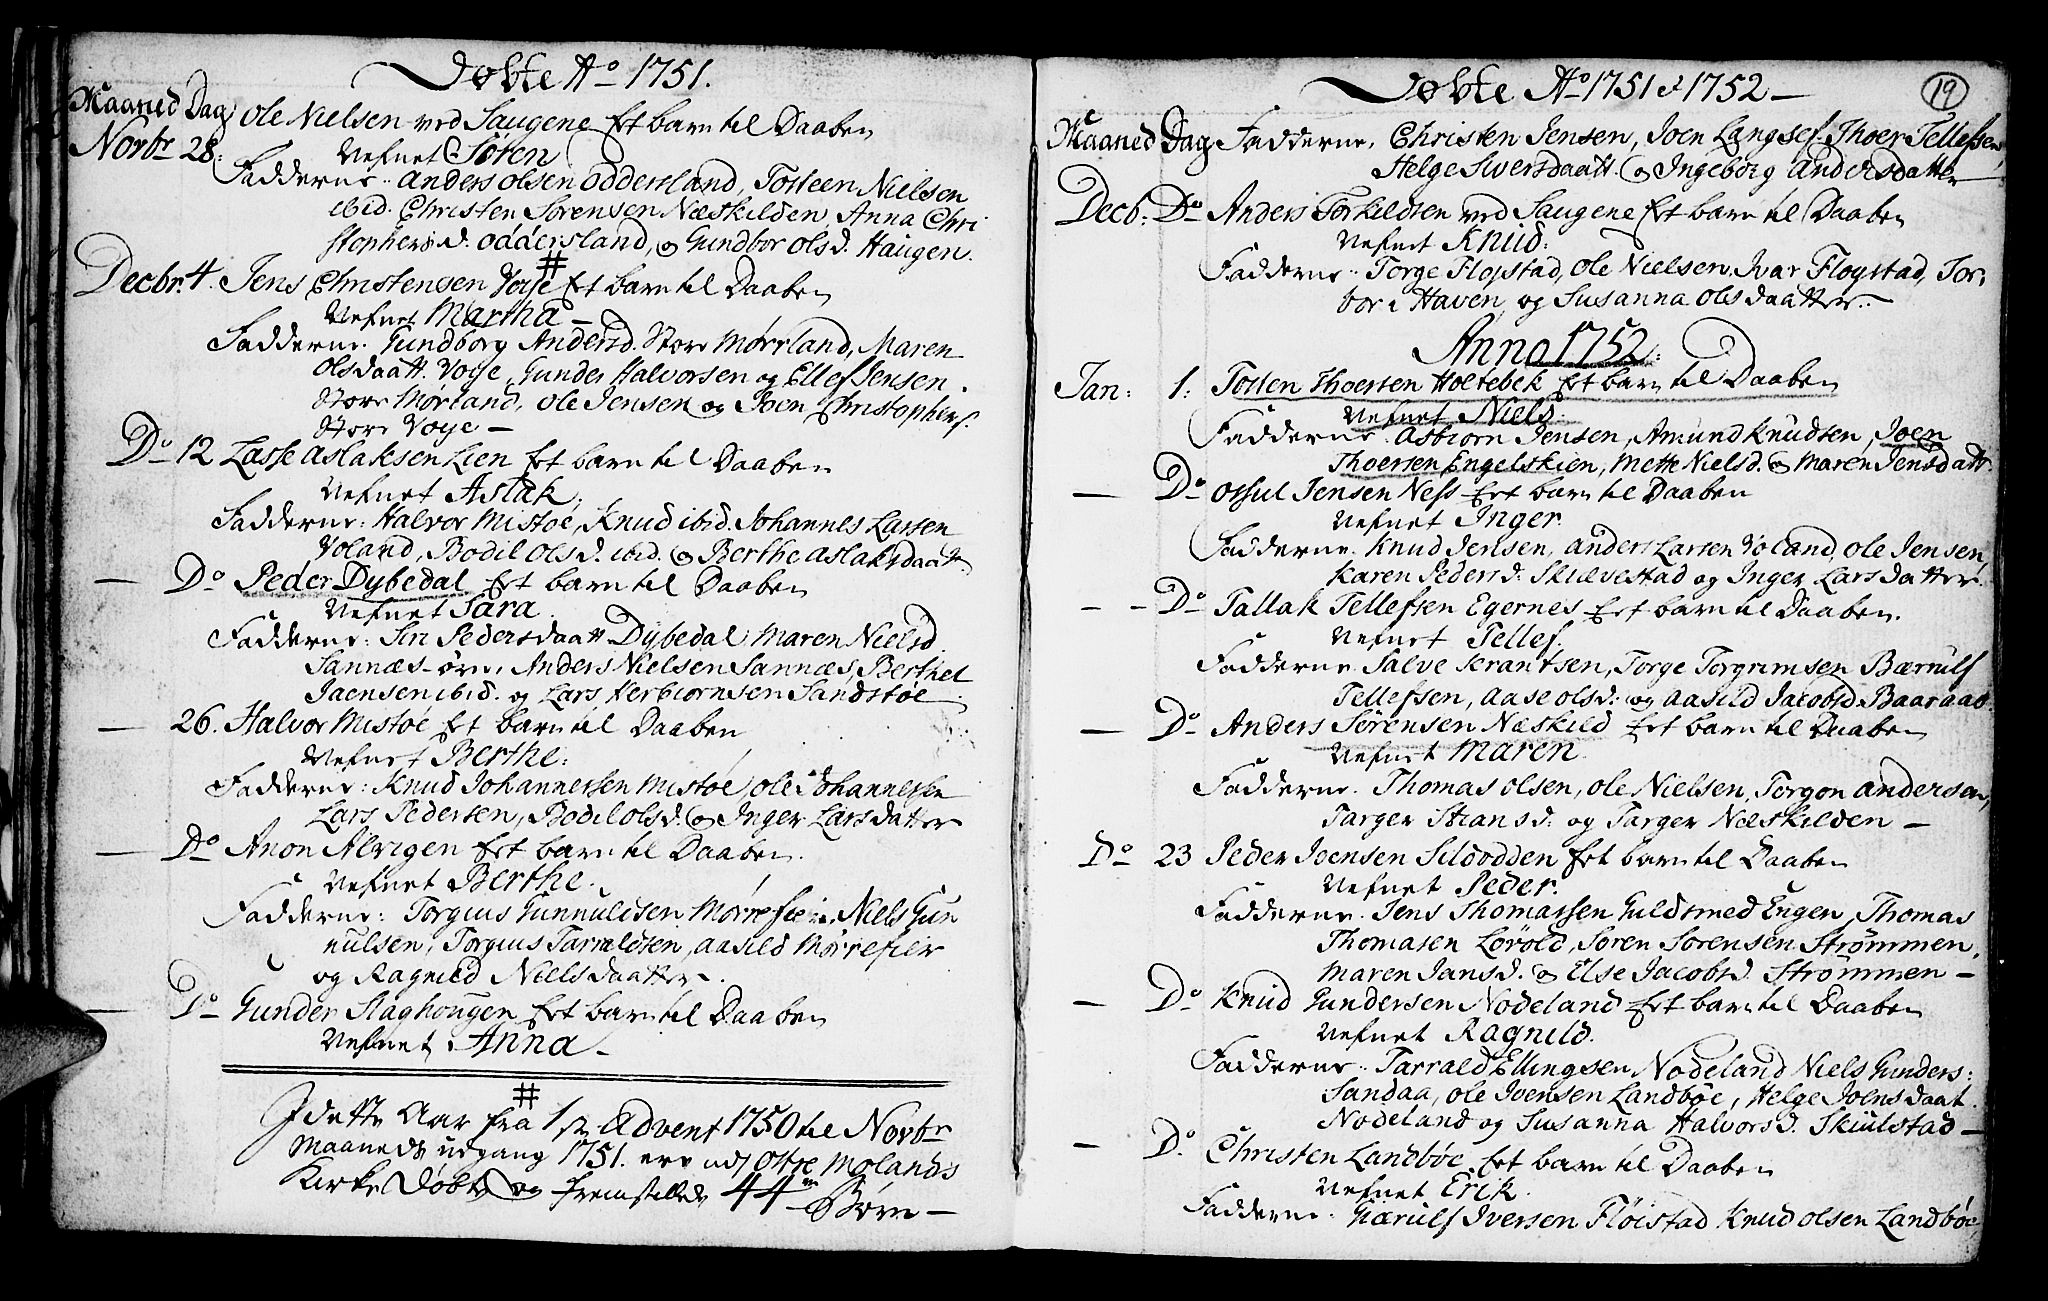 Døbte Ao 1751.
Maaned Dag Ole Nielsen ved Saugene Et barn til Daaben
Novbr 28: Nefnet Søren
Fadderne: Anders Olsen Oddersland, Tosteen Nielsen
ibid. Christen Sørensen Næskilden, Anna Chri
stophersd. Oddersland, og Gundbor Olsd. Haugen.
#
Decbr. 4. Jens Christensen Voje Et barn til Daaben
Nefnet Martha –
Fadderne. Gundborg Andersd. Store Mørland, Maren
Olsdaatt. Voje, Gunder Halvorsen og Ellef Jensen
Store Mørland, Ole Jensen og Joen Christophers.
Store Voje –
Do 12 Lasse Aslaksen Lien Et barn til Daaben
Nefnet Aslak.
Fadderne: Halvor Mistøe, Knud ibid. Johannes Larsen
Voland, Bodil Olsd. ibid. og Berthe Aslaksdaatt.
— Do Peder Dybedal Et barn til Daaben
Nefnet Sara.
Fadderne: Siri Pedersdaatt. Dybedal, Maren Nielsd.
Sannæs-øen, Anders Nielsen Sannæs, Berthel
Jaensen ibid. og Lars Herbiornsen Sandstøe
— 26. Halvor Mistøe Et barn til Daaben
Nefnet Berthe:
Fadderne: Knud Johannessen Mistøe, Ole Johannessen
Lars Pedersen, Bodil Olsd. og Inger Larsdatter
— Do Anon Alvigen Et barn til Daaben.
Nefnet Berthe.
Fadderne: Torgius Gunnuldsen Mørrefier, Niels Gun
nulsen, Torgius Tarraldsen, Aasild Mørrefier
og Ragnild Nielsdaatter.
— Do Gunder Staghougen Et barn til Daaben
Nefnet Anna –
#
I dette Aar fra 1ste Advent 1750 til Novbr
Maaneds udgang 1751. ere udj Østre Molands
Kirke Døbte og fremstillede 44 Børn –
Døbte Ao 1751 & 1752 –
19
Maaned Dag Fadderne. Christen Jensen, Joen Langsef. Thoer Tellefsen
Helge Siversdaatt. og Ingeborg Andersdatter
Decb: Do Anders Torkildsen ved Saugene Et barn til Daaben
Nefnet Knud:
Fadderne: Torge Flojstad, Ole Nielsen, Ivar Flogstad, Tor-
bor i Haven, og Susanna Olsdaatter.
Anno 1752:
Jan: 1: Tosten Thoersen Holtebek Et barn til Daaben
Nefnet Niels.
Fadderne: Asbiorn Jensen, Amund Knudsen, Joen
Thoersen Engelskien, Mette Nielsd. og Maren Jensdatt.
— Do Ossul Jensen Ness Et barn til Daaben
Nefnet Inger.
Fadderne. Knud Jensen, Anders Larsen Voland, Ole Jensen,
Karen Pedersd: Skiævestad og Inger Larsdatter
– – Do Tallak Tellefsen Egernes Et barn til Daaben.
Nefnet Tellef.
Fadderne. Salve Krantsen, Torge Torgrimsen Bærnulf
Tellefsen, Aase Olsd: og Aasild Jacobsd. Baaraas.
— Do Anders Sørensen Næskild Et barn til Daaben
Nefnet Maren.
Fadderne. Thomas Olsen, Ole Nielsen, Torgon Andersen,
Targer Stiansd: og Targer Næskilden –
Do 23 Peder Joensen Sildodden Et barn til Daaben
Nefnet Peder.
Fadderne. Jens Thomassen Guldsmed Engen, Thomas
Thomasen Lørold, Søren Sørensen Strømmen,
Maren Jansd. og Else Jacobsd. Strømmen –
— Do Knud Gundersen Nodeland Et barn til Daaben
Nefnet Ragnild.
Fadderne: Tarrald Ellingsen Nodeland Niels Gunders:
Sandaa, Ole Joensen Landbøe, Helge Joensdaat.
Nodeland og Susanna Halvorsd. Skiulstad –
— Do. Christen Landbøe Et barn til Daaben
Nefnet Erik.
Fadderne: Gærulf Iversen Fløistad Knud Olsen Landbøe